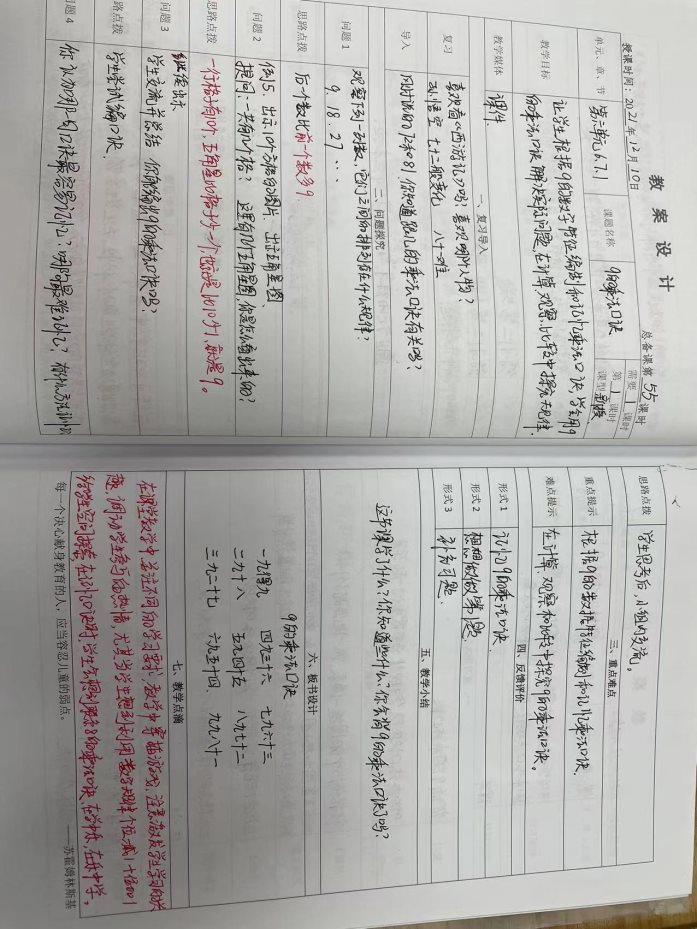 教 案 设 计
总备课第 55 课时
授课时间：2021年12月10日
需要 1 课时
第 1 课时
单元、章、节 第六单元6.7.1 课题名称 9的乘法口诀 课型 新授
教学目标 让学生根据9的数字特征编制和记忆乘法口诀，学生用9
的乘法口诀解决实际问题，在计算、观察、比较中探究规律.
教学媒体 课件.
一、复习导入
复习 喜欢看《西游记》吗？喜欢哪个人物？
孙悟空 七十二般变化 八十一难
导入 刚才说的72和81，你知道跟几的乘法口诀有关吗？
二、问题探究
问题 1 观察下列一列数，它们之间的排列存在什么规律？
9. 18. 27 ...
思路点拨 后一个数比前一个数多9
问题 2 例5. 出示10个方格的图片 出示五角星图
提问：一共有几个格？ 这里有几个五角星图，你是怎么看出来的？
思路点拨 一行格子有10个，五角星比格子少一个，也就是比10少1，就是9。
继续完成
问题 3 学生交流并总结 你能编出9的乘法口诀吗？
思路点拨 学生尝试编口诀.
问题 4 你认为哪句口诀最容易记忆？哪句最难记忆？有什么方法记忆
思路点拨 学生思考后，小组内交流。
三、重点难点
重点提示 根据9的数据特征编制和记忆乘法口诀.
难点提示 在计算、观察和比较中探究9的乘法口诀。
四、反馈评价
形式 1 记忆9的乘法口诀
形式 2 想想做做第 题
形式 3 补充习题.
五、教学小结
这节课学了什么？你知道些什么？你会背9的乘法口诀了吗？
六、板书设计
9的乘法口诀
一九得九 四九三十六 七九六十三
二九十八 五九四十五 八九七十二
三九二十七 六九五十四 九九八十一
七、教学点滴
在课堂教学中关注不同的学习要求，教学中穿插游戏，注意激发学生学习的兴
趣，调动学生学习的热情，尤其当学生想到利用数字规律个位减1十位加1
给学生空间探索，在记忆口诀时，学生会想到联系8的乘法口诀，在学中乐，在乐中学。
每一个决心献身教育的人，应当容忍儿童的弱点。 ——苏霍姆林斯基